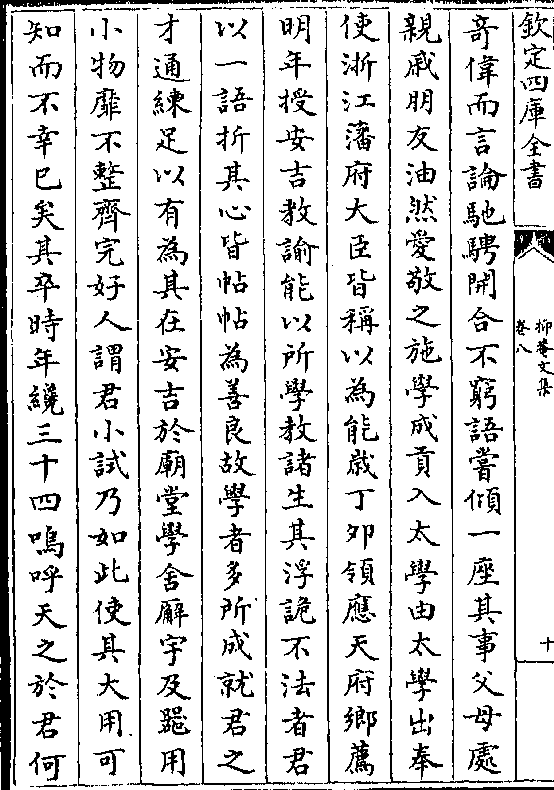 欽定四庫全書
抑菴文集
卷八
十
奇偉而言論馳騁開合不窮語嘗傾一座其事父母處
親戚朋友油然愛敬之施學成貢入太學由太學出奉
使浙江藩府大臣皆稱以為能歲丁夘領應天府鄉薦
明年授安吉教諭能以所學教諸生其浮詭不法者君
以一語折其心皆帖帖為善良故學者多所成就君之
才通練足以有為其在安吉於廟堂學舍廨宇及器用
小物靡不整齊完好人謂君小試乃如此使其大用可
知而不幸已矣其卒時年纔三十四嗚呼天之於君何